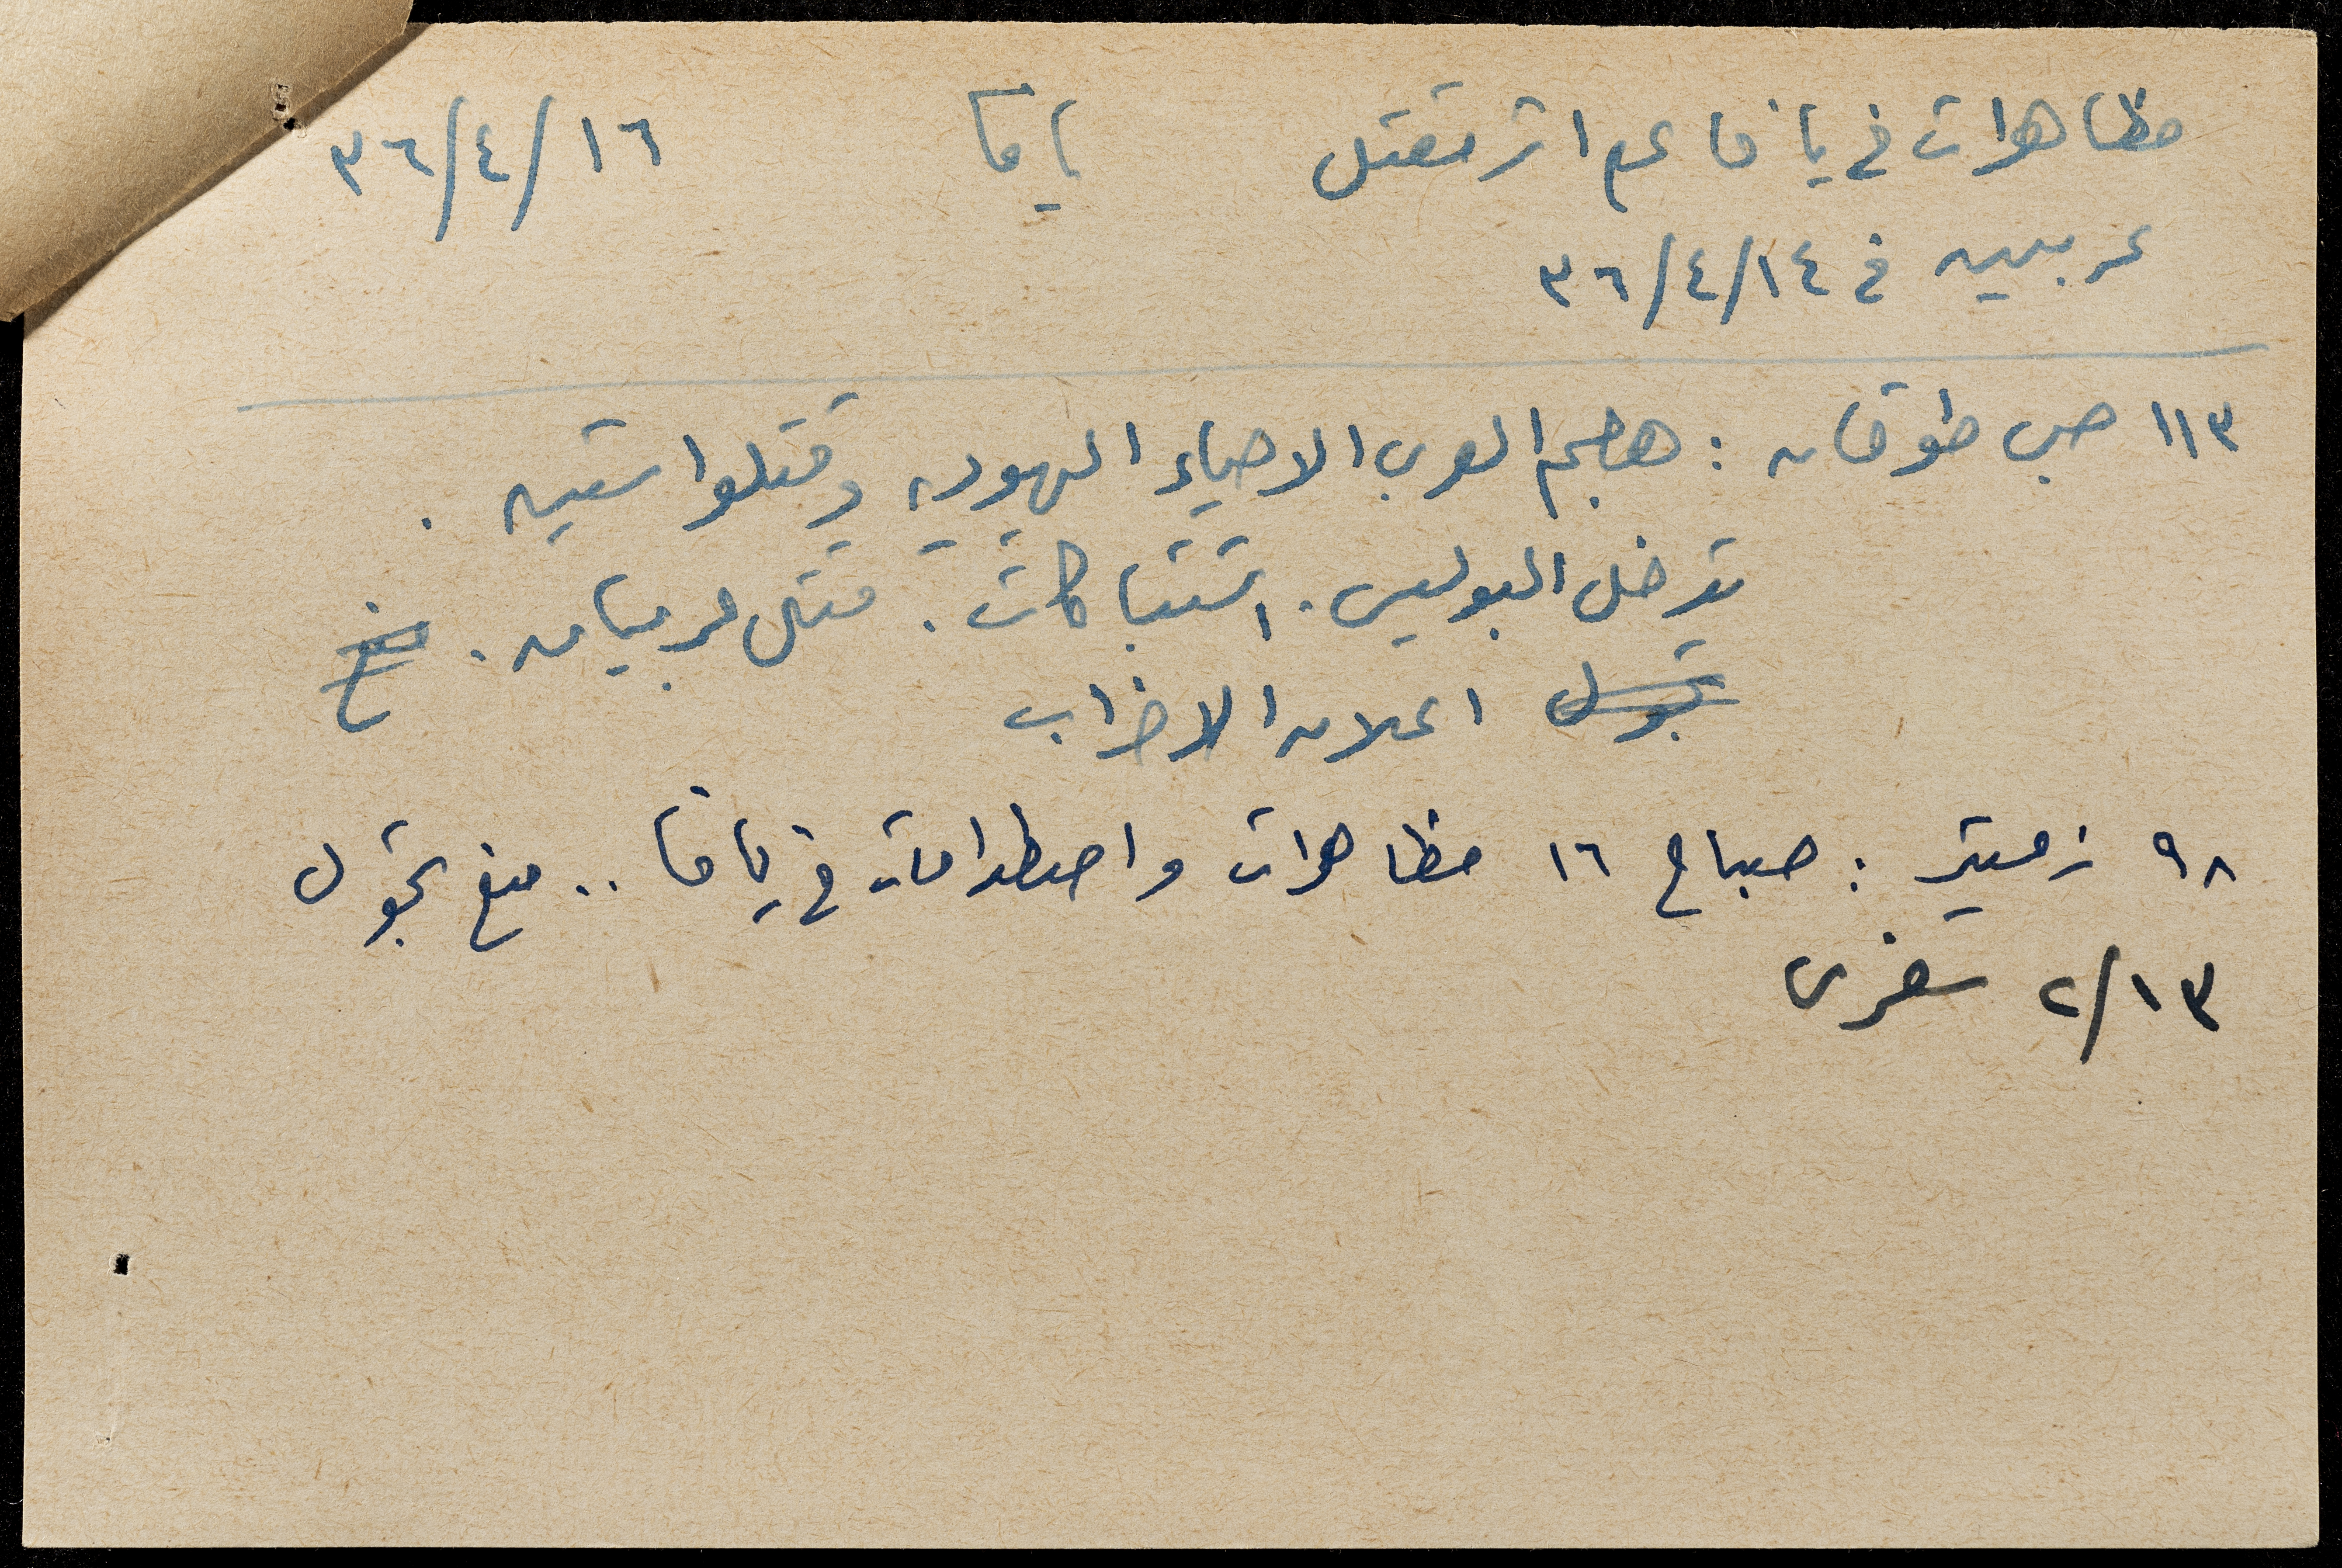 مظاهرات في يافا على اثر مقتل يافا ١٦/٤/٣٦
عربيين في ١٤/٤/٣٦
١١٣ صبي طوقان : هجم العرب الاحياء اليهودية وقتلوا ستين .
تدخل البوليس . اشتباكات . قتل عربيان . منع
تجول اعلان الاضراب
٩٨ زعيتر : صباح ١٦ مظاهرات واصطدامات في يافا .. منع تجول
٢/١٣ سفري